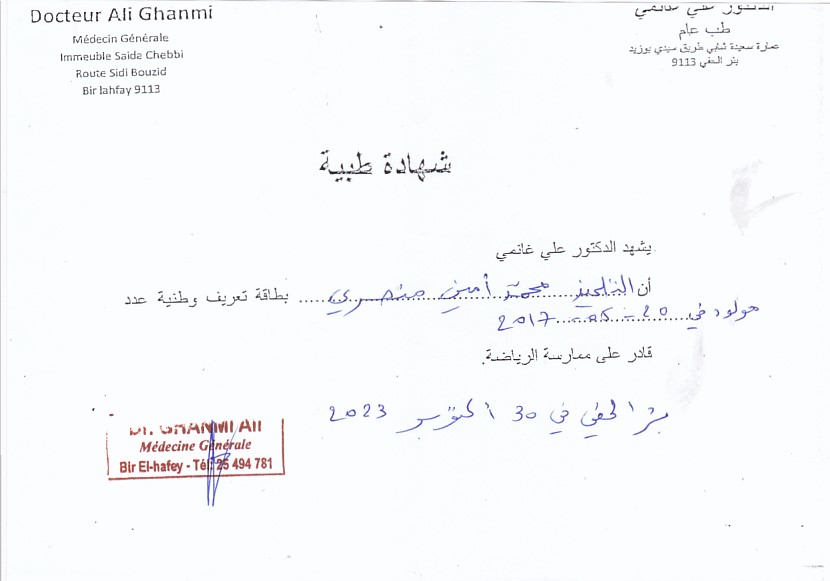 Docteur Ali Ghanmi
Médecin Générale
Immeuble Saida Chebbi
Route Sidi Bouzid
Bir lahfay 9113
الدكتور علي غانمي
طب عام
عمارة سعيدة شابي طريق سيدي بوزيد
بئر الحفي 9113
شهادة طبية
يشهد الدكتور علي غانمي
أن التلميذ محمد أمين منصري بطاقة تعريف وطنية عدد
مولود في 20 - 2017
قادر على ممارسة الرياضة.
بئر الحفي في 30 أكتوبر 2023
Dr. GHANMI Ali
Médecine Générale
Bir El-hafey - Tél: 25 494 781